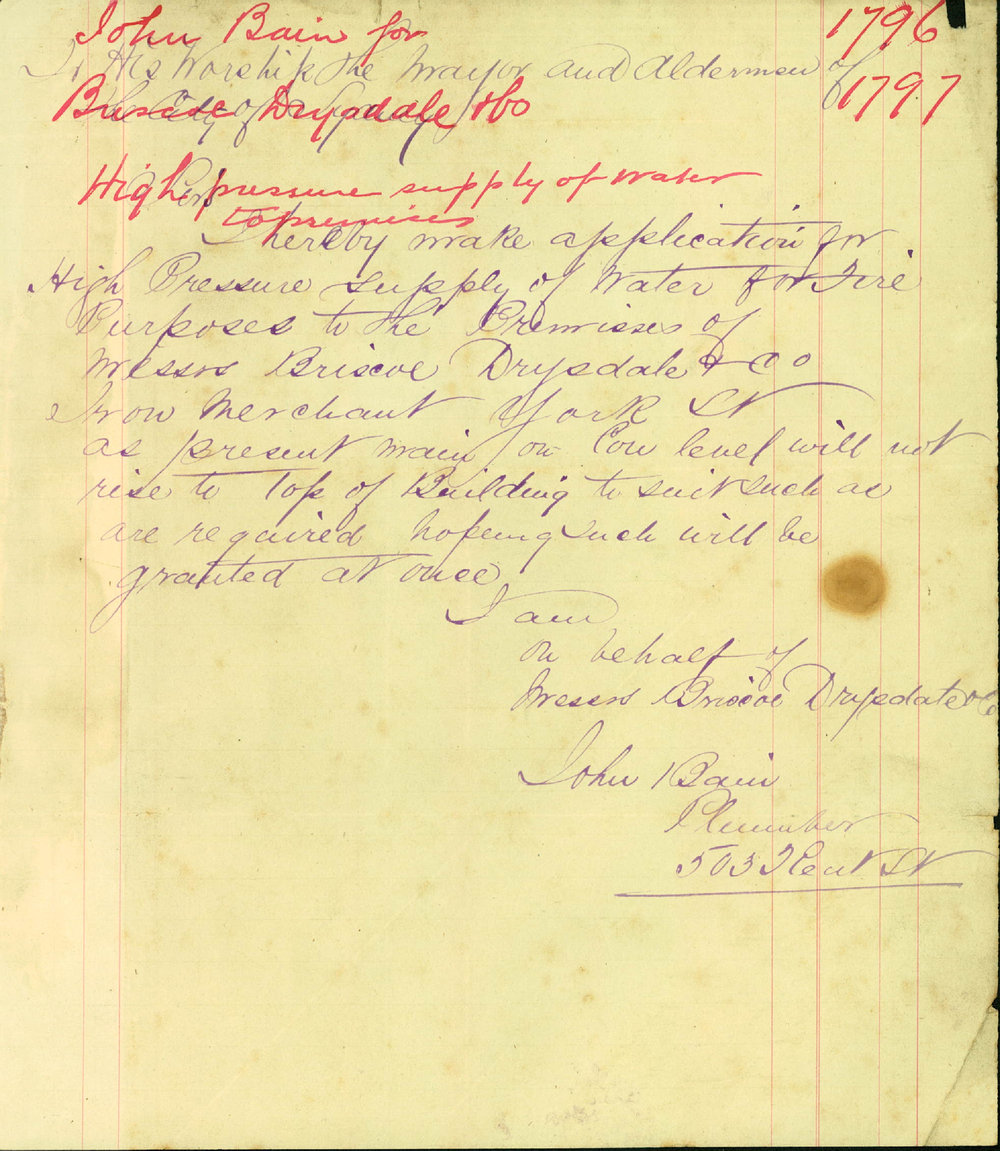 John Bain for 1796
To His Worship the Mayor and Aldermen of
Briscoe Drysdale &Co 1797
the City of Sydney
High pressure supply of water
to premises
Sirs
I hereby make application for
High Pressure supply of Water for Fire
Purposes to the Premisses of
Messrs Briscoe Drysdale & Co
Iron Merchant York St
as present main on Low level will not
rise to Top of Building to suit such as
are required hopeing such will be
granted at once
I am
on behalf of
Messrs Briscoe Drysdale & Co
John Bain
Plumber
503 Kent St